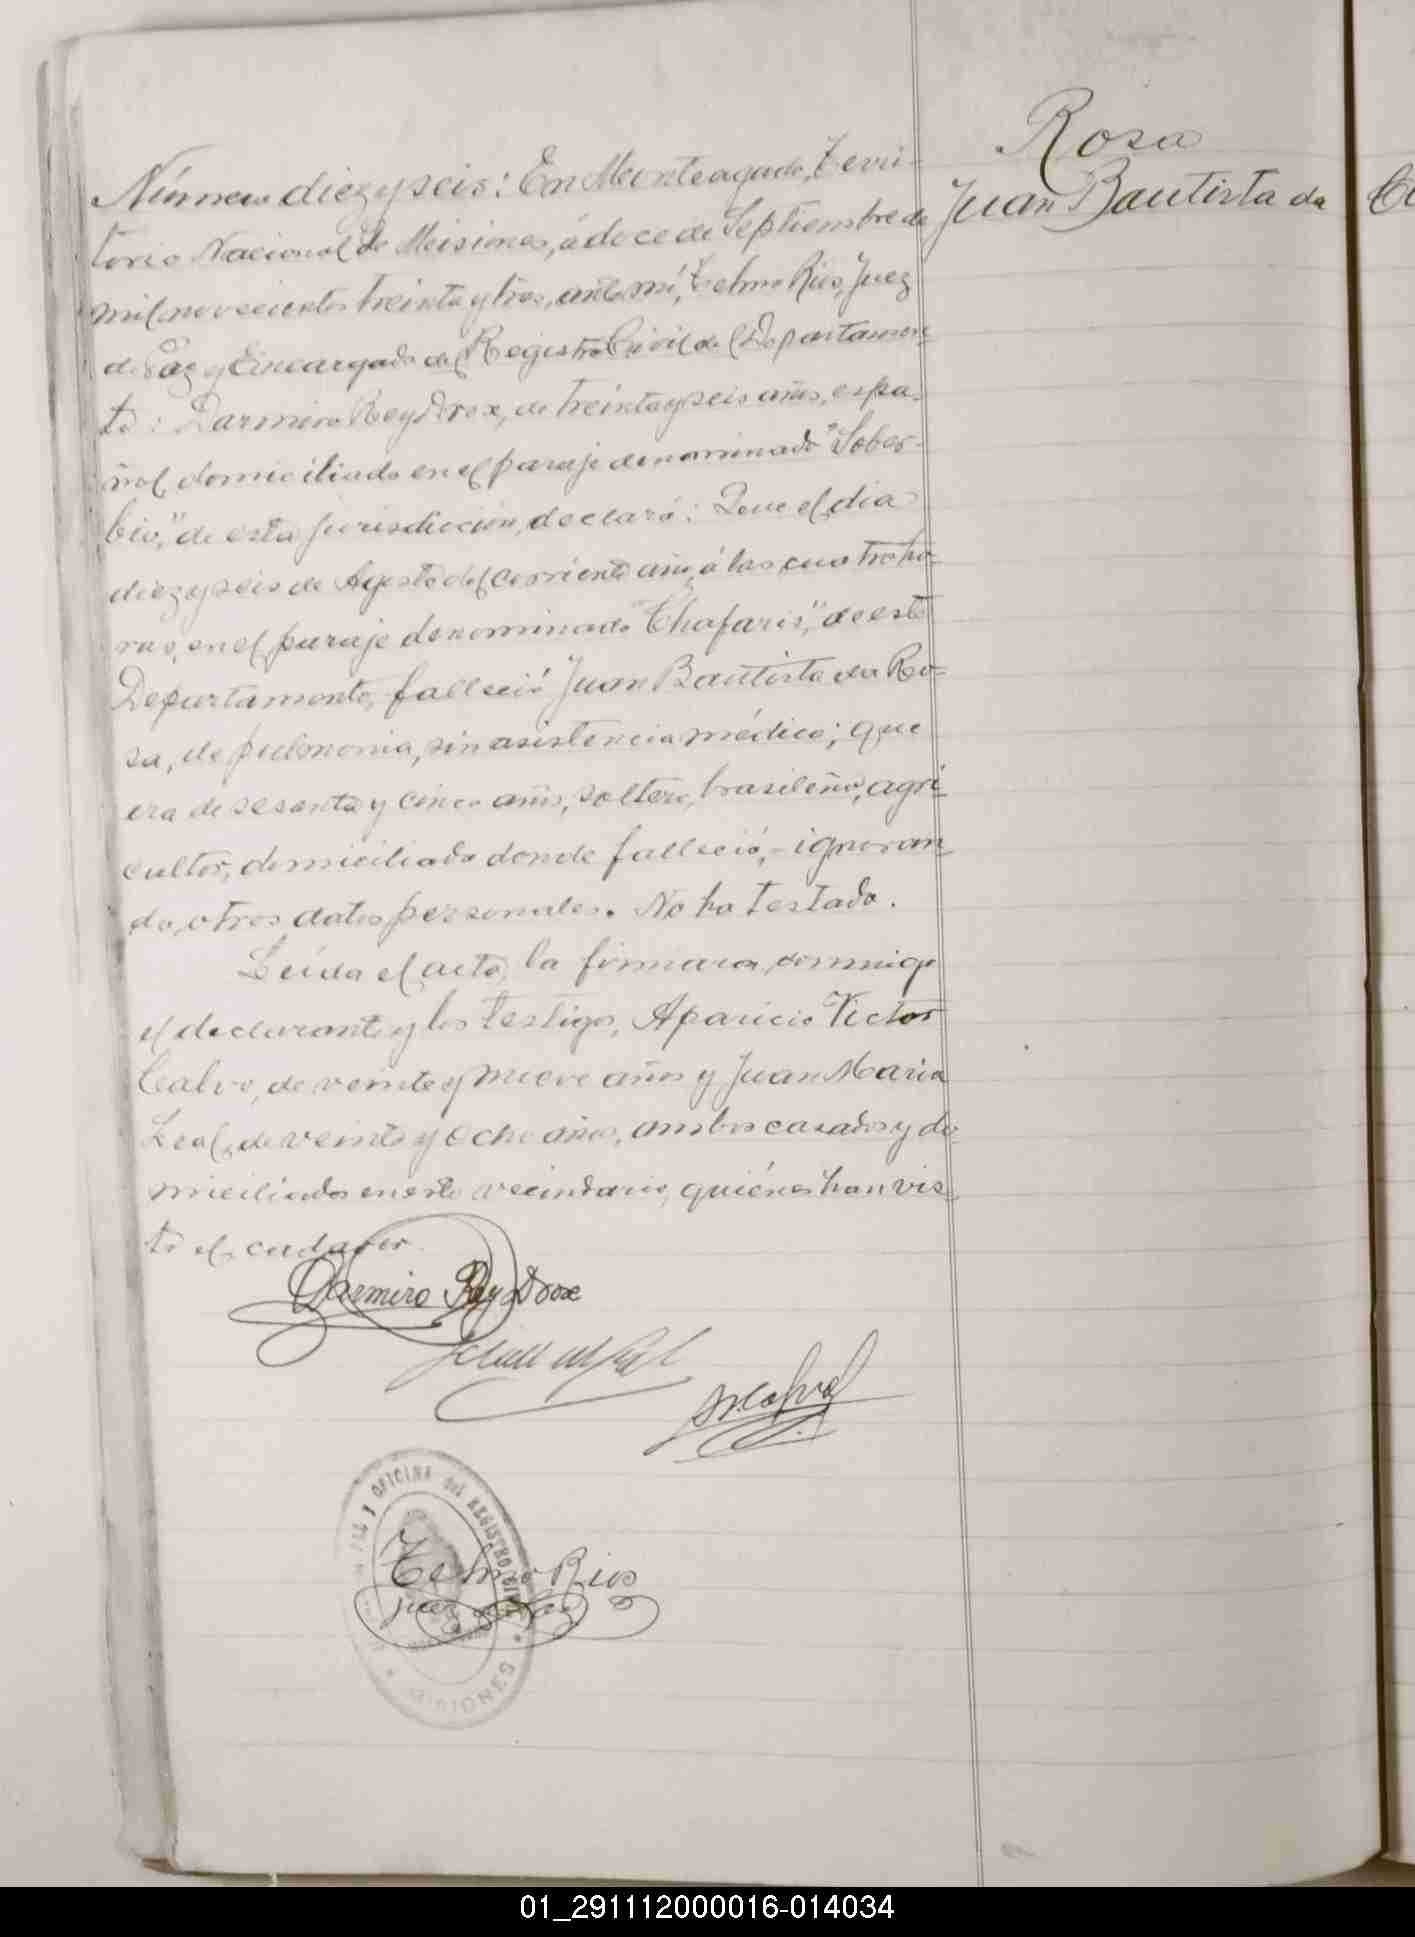 Rosa
Juan Bautista da
Número diez y seis: En Monteagudo, Terri-
torio Nacional de Misiones, á doce de Septiembre de
mil novecientos treinta y tres, ante mí, Telmo Rios, Juez
de Paz y Encargado del Registro Civil del Departamen-
to: Darmiro Rey Drox, de treinta y seis años, espa-
ñol, domiciliado en el paraje denominado "Sober-
bio," de esta jurisdicción, declaró: Que el dia
diez y seis de Agosto del corriente año, á las cuatro ho-
ras, en el paraje denominado "Chafaris," de este
Departamento, falleció Juan Bautista da Ro-
sa, de pulmonia, sin asistencia médica; que
era de sesenta y cinco años, soltero, brasileño, agri-
cultor, domiciliado donde falleció, - ignoran
do, otros datos personales. No ha testado.
Leida el acta, la firmaron conmigo
el declarante y los testigos, Aparicio Victor
Calvo, de veinte y nueve años y Juan Maria
Leal, de veinte y ocho años, ambos casados y do-
miciliados en este vecindario, quiénes han vis-
to el cadaver.
Darmiro Rey Drox
Calvo
OFICINA del REGISTRO CIVIL
Telmo Rios
Juez de Paz
MISIONES
01_291112000016-014034